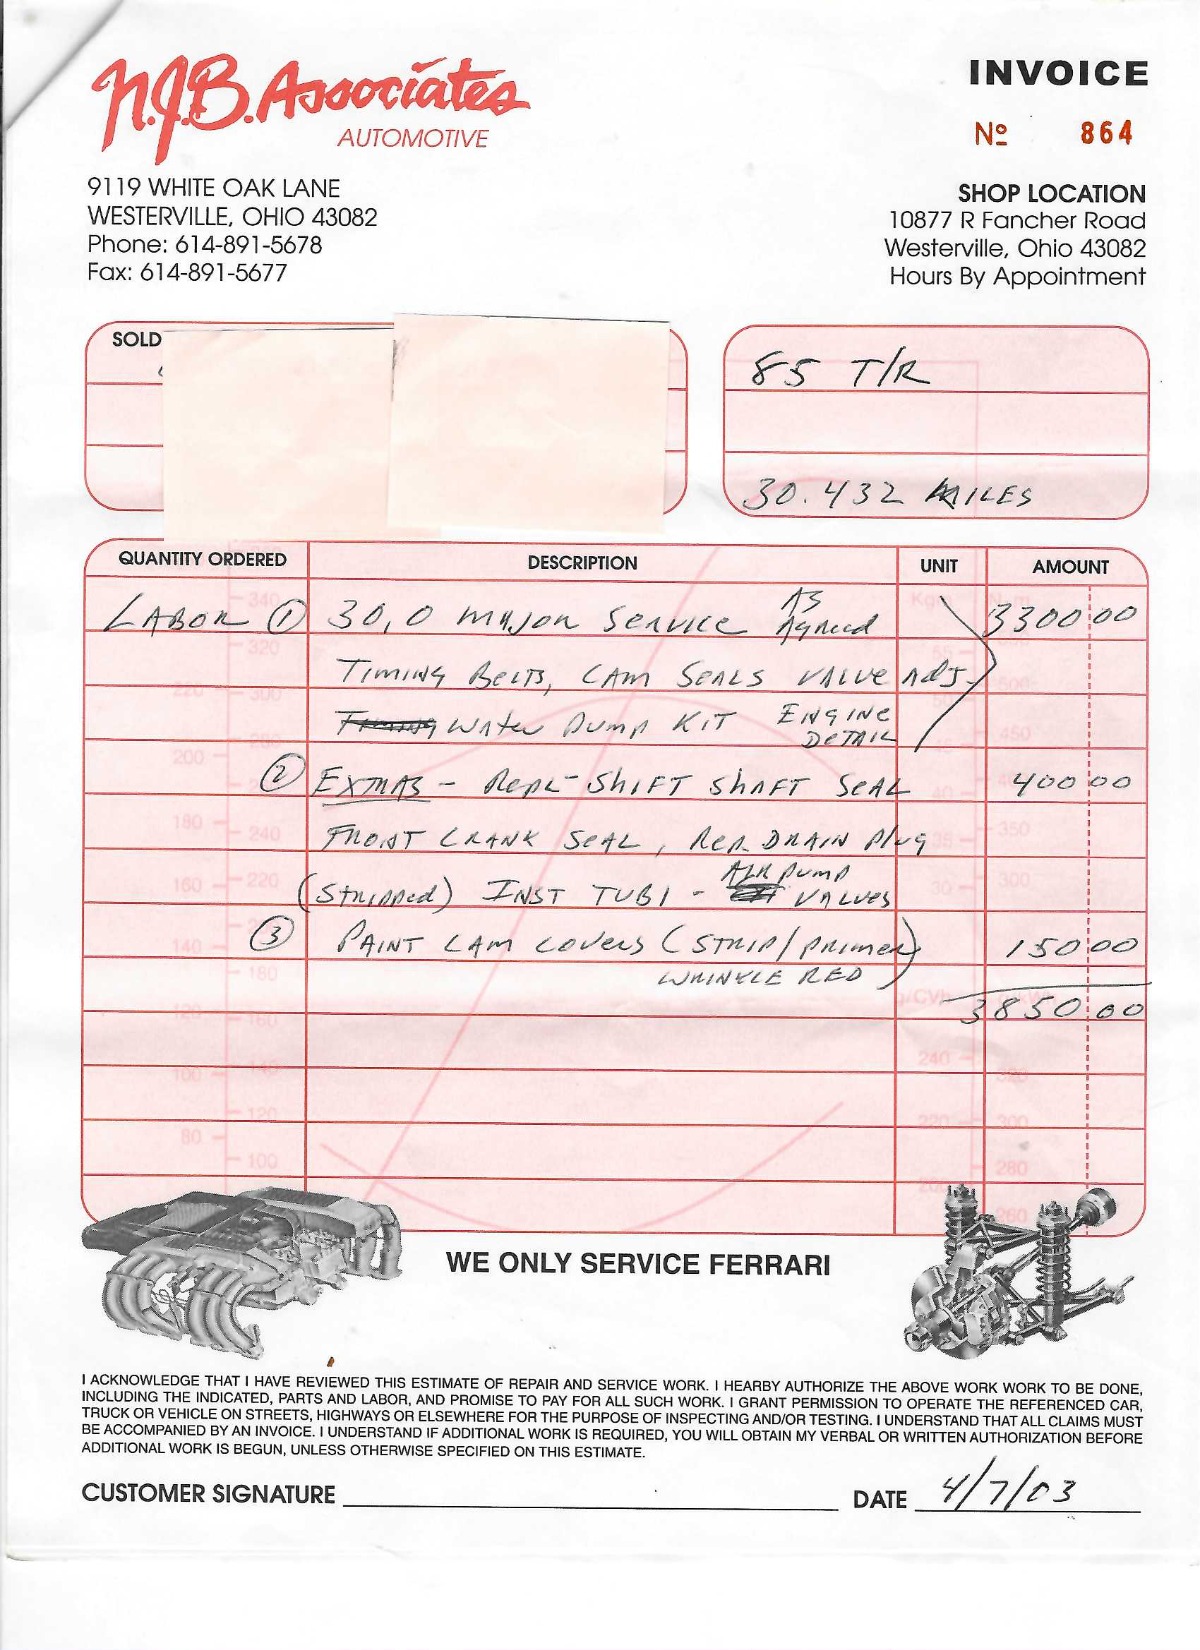 N.J.B. Associates
AUTOMOTIVE
9119 WHITE OAK LANE
WESTERVILLE, OHIO 43082
Phone: 614-891-5678
Fax: 614-891-5677
INVOICE
Nº 864
SHOP LOCATION
10877 R Fancher Road
Westerville, Ohio 43082
Hours By Appointment
SOLD
85 T/R
30.432 MILES
QUANTITY ORDERED DESCRIPTION UNIT AMOUNT
LABOR ① 30,0 MAJOR SERVICE AS Agreed 3300 00
TIMING BELTS, CAM SEALS VALVE ADJ.
WATER PUMP KIT ENGINE DETAIL
② EXTRAS - REPL SHIFT SHAFT SEAL 400 00
FRONT CRANK SEAL, REP. DRAIN Plug
(STRIPPED) INST TUBI - AIR PUMP VALVES
③ PAINT CAM COVERS (STRIP/PRIMER) 150 00
WRINKLE RED
3850 00
WE ONLY SERVICE FERRARI
I ACKNOWLEDGE THAT I HAVE REVIEWED THIS ESTIMATE OF REPAIR AND SERVICE WORK. I HEARBY AUTHORIZE THE ABOVE WORK WORK TO BE DONE,
INCLUDING THE INDICATED, PARTS AND LABOR, AND PROMISE TO PAY FOR ALL SUCH WORK. I GRANT PERMISSION TO OPERATE THE REFERENCED CAR,
TRUCK OR VEHICLE ON STREETS, HIGHWAYS OR ELSEWHERE FOR THE PURPOSE OF INSPECTING AND/OR TESTING. I UNDERSTAND THAT ALL CLAIMS MUST
BE ACCOMPANIED BY AN INVOICE. I UNDERSTAND IF ADDITIONAL WORK IS REQUIRED, YOU WILL OBTAIN MY VERBAL OR WRITTEN AUTHORIZATION BEFORE
ADDITIONAL WORK IS BEGUN, UNLESS OTHERWISE SPECIFIED ON THIS ESTIMATE.
CUSTOMER SIGNATURE DATE 4/7/03